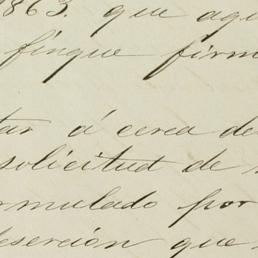 1863. que aqu
finque firm
tar á cerca de
solicitud de
rmulado por
deserción que